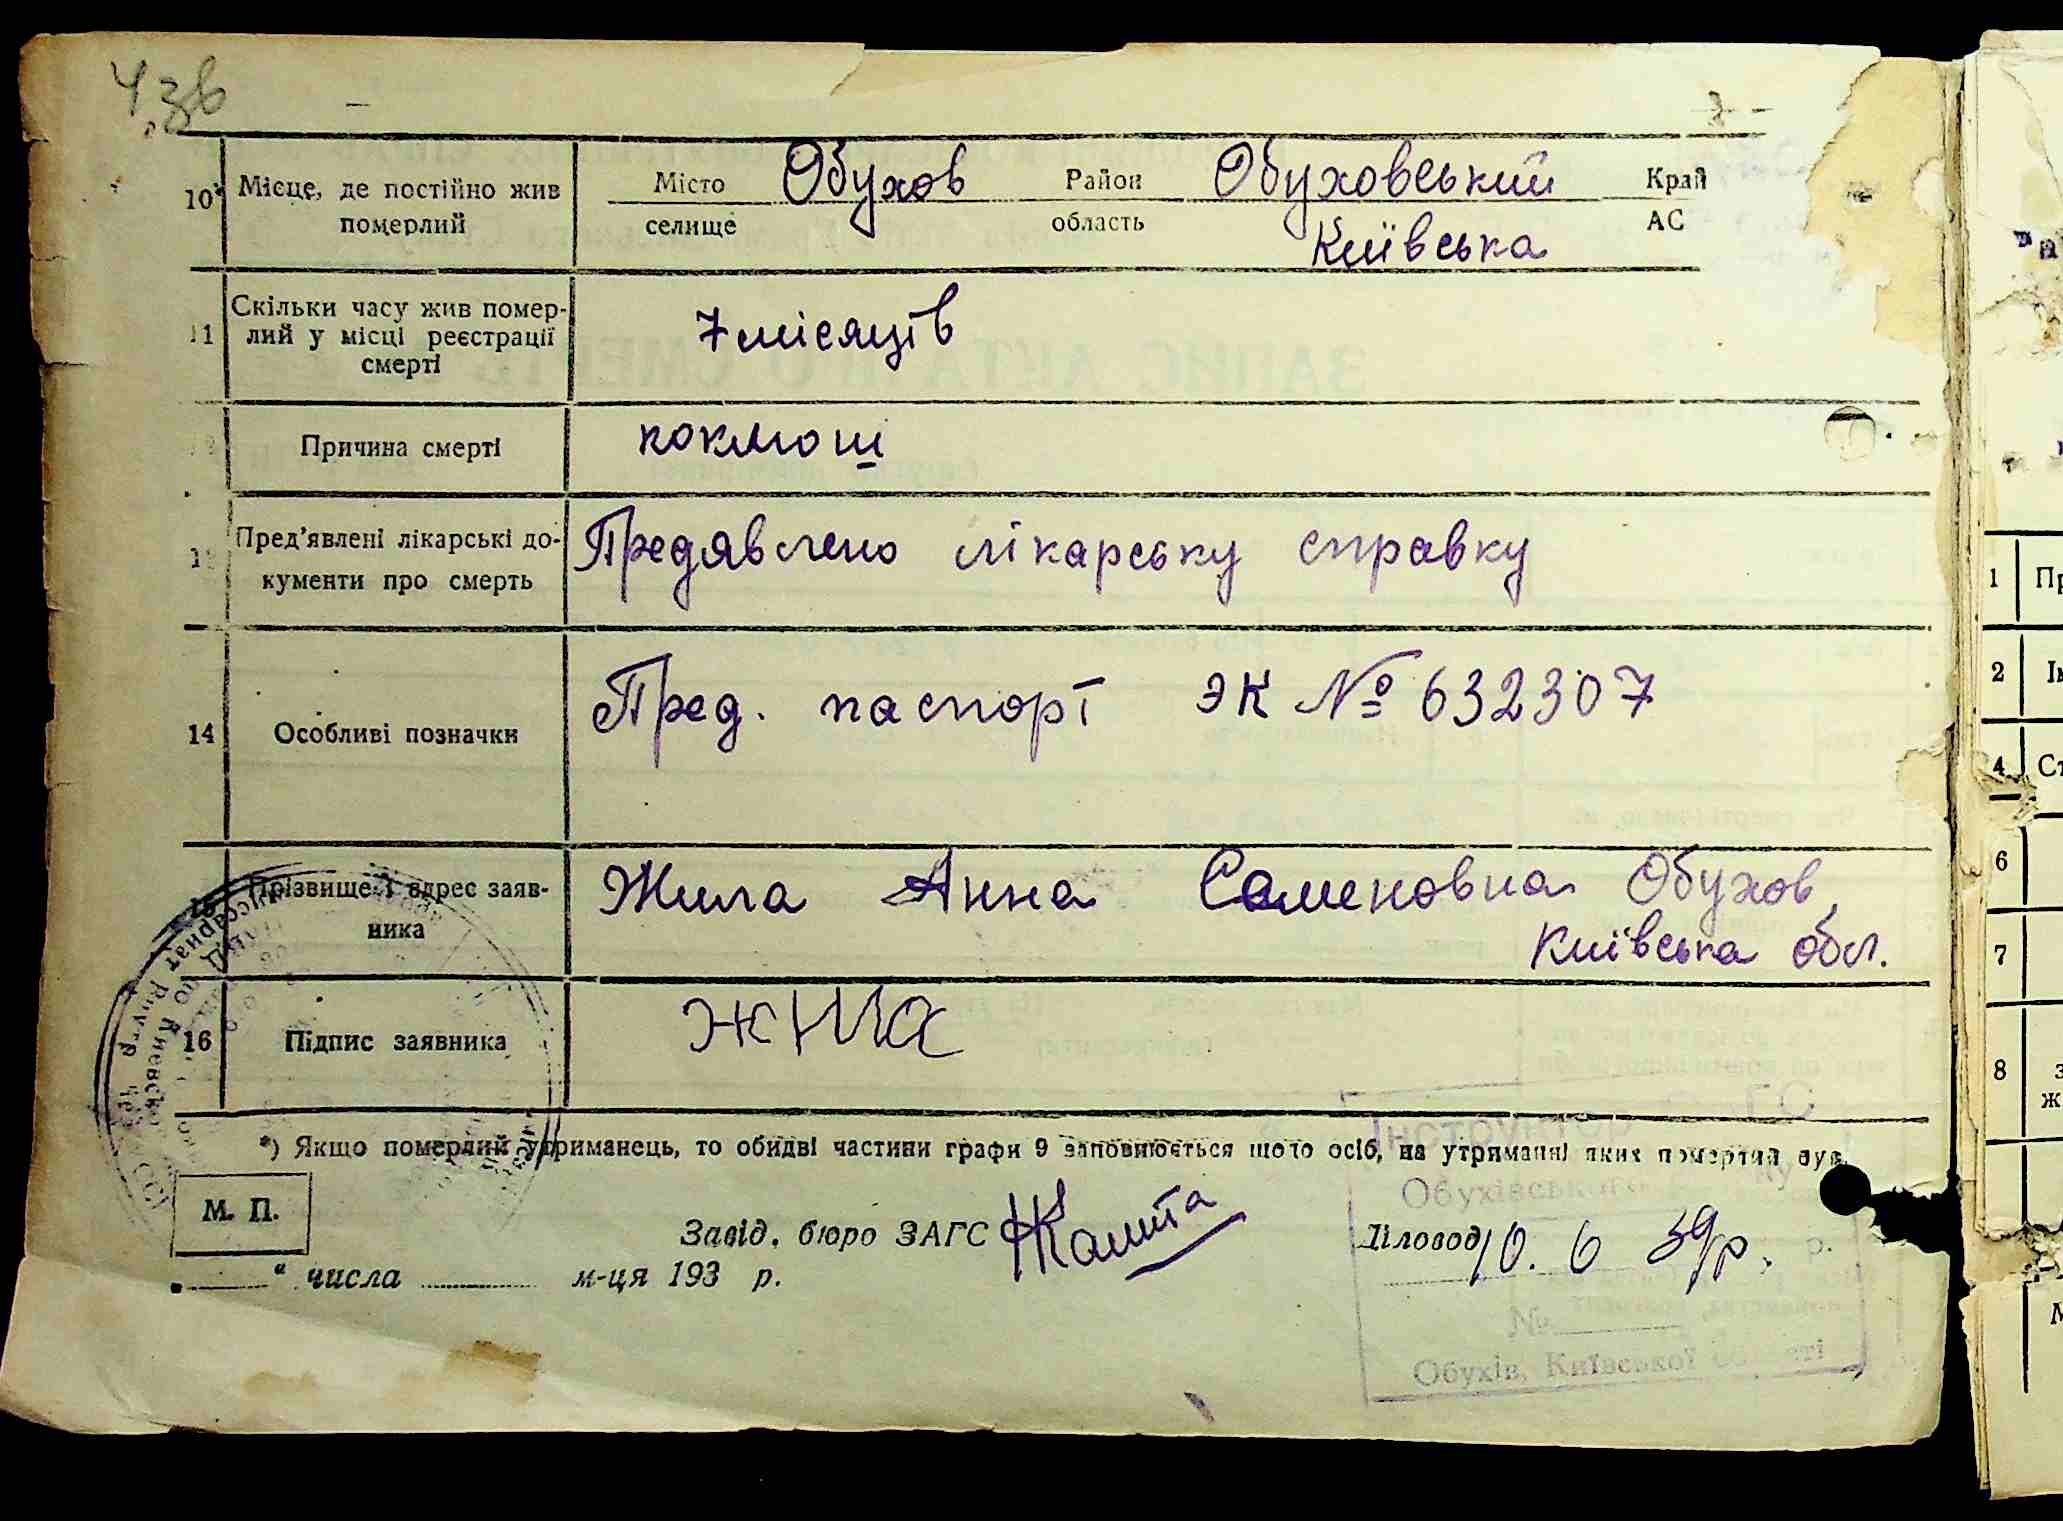 10
Місце, де постійно жив
померлий
Місто Обухов Район Обуховський Край
селище область Київська АС
11
Скільки часу жив помер-
лий у місці реєстрації
смерті
7 місяців
Причина смерті
коклюш
Пред'явлені лікарські до-
кументи про смерть
Предявлено лікарську справку
14 Особливі позначки
Пред. паспорт ЭК № 632307
Прізвище і адрес заяв-
ника
Жила Анна Семеновна Обухов,
Київська обл.
16 Підпис заявника
*) Якщо померлий утриманець, то обидві частини графи 9 заповнюється щодо осіб, на утриманні яких померлий був.
М. П.
Завід. бюро ЗАГС
Діловод 10. 6 39 р.
„ “ числа м-ця 193 р.
Обухівського
№
Обухів, Київської області
1 Пр
2 Ім
4 Ст
6
7
8 з
ж